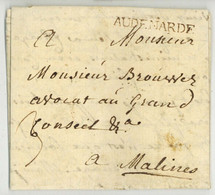 AUDENARDE
A Monsieur
Monsieur Brouwez
avocat au Grand
Conseil &a
a Malines